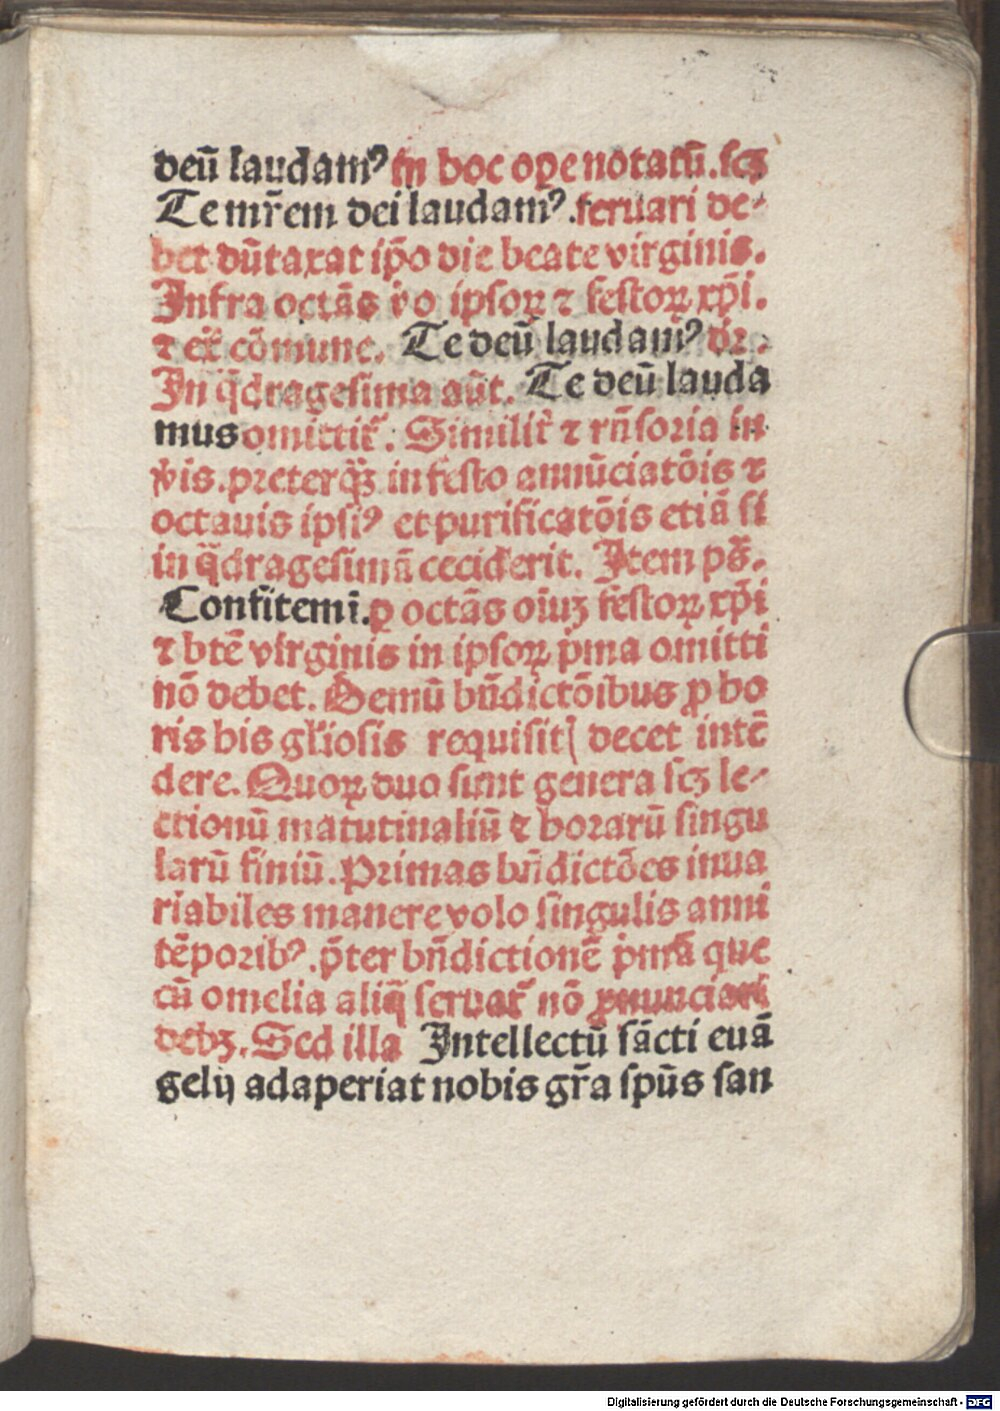 deū laudamꝰ in hoc ope notatū. scꝫ
Te mr̄em dei laudamꝰ. seruari de⸗
bet dūtaxat ip̄o die beate virginis.
Infra octās v̓o ipsoꝝ ⁊ festoꝝ xp̄i.
⁊ ex̄ cōmune. Te deū laudamꝰ dr̄.
In q̄dragesima aūt. Te deū lauda
mus omittit᷑. Similit᷑ ⁊ rn̄soria in
v̓is. preterq̄ꝫ in festo annūciatōis ⁊
octauis ipsiꝰ et purificatōis etiā si
in q̄dragesimā ceciderit. Item pꝰs̄.
Confitemī. ꝑ octās oīuꝫ festoꝝ xp̄i
⁊ btē virginis in ipsoꝝ p̓ma omitti
nō debet. Demū bn̄dictōibus ꝓ ho
ris his gl̓iosis requisitꝭ decet intē
dere. Quoꝝ duo sunt genera scꝫ le⸗
ctionū matutinaliū ⁊ horarū singu
larū finiū. Primas bn̄dictōes inua
riabiles manere volo singulis anni
tēporibꝰ. p̄ter bn̄dictionē p̓mā que
cū omelia aliq̄ seruat᷑ nō ꝓnunciari
debꝫ. Sed illa Intellectū sācti euā
gelij adaperiat nobis gr̄a spūs san
Digitalisierung gefördert durch die Deutsche Forschungsgemeinschaft - DFG